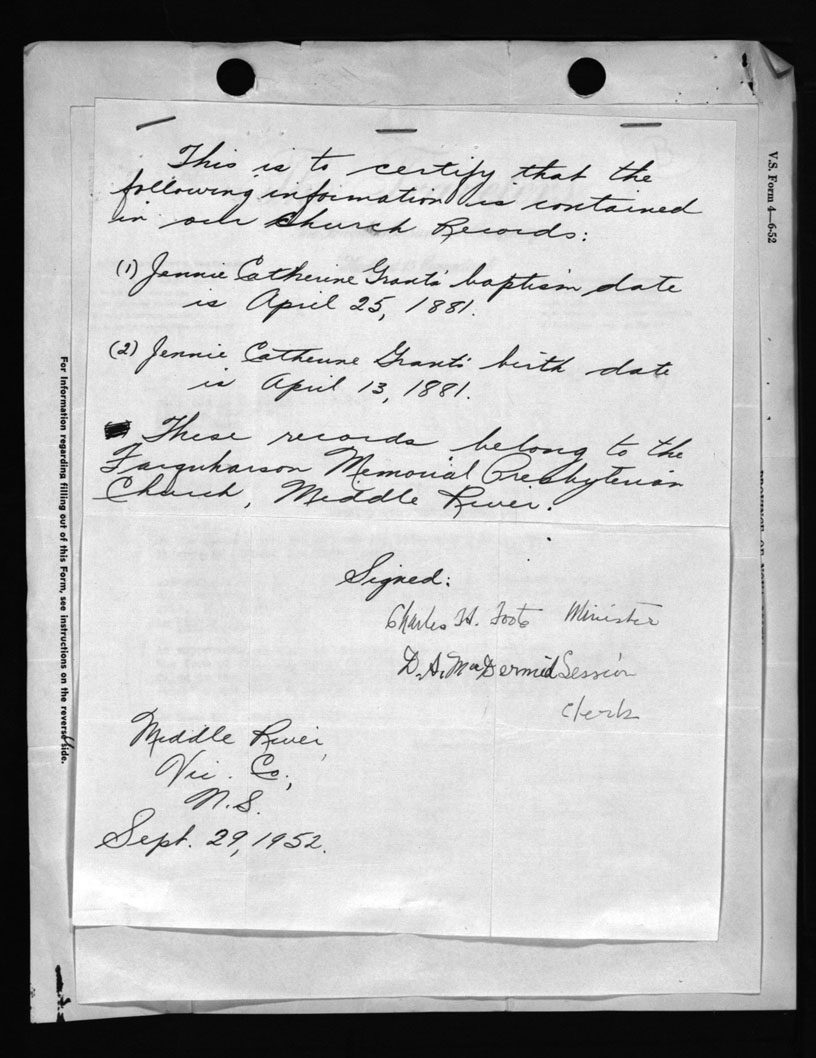 This is to certify that the
following information is contained
in our Church Records:
(1) Jennie Catherine Grant's baptism date
is April 25, 1881.
(2) Jennie Catherine Grant's birth date
is April 13, 1881.
These records belong to the
Farquharson Memorial Presbyterian
Church, Middle River.
Signed:
Charles H. Foote Minister
D. A. MacDermid Session
Clerk
Middle River,
Vic. Co.,
N.S.
Sept. 29, 1952.
V.S. Form 4—6-52
For Information regarding filling out of this Form, see instructions on the reverse side.